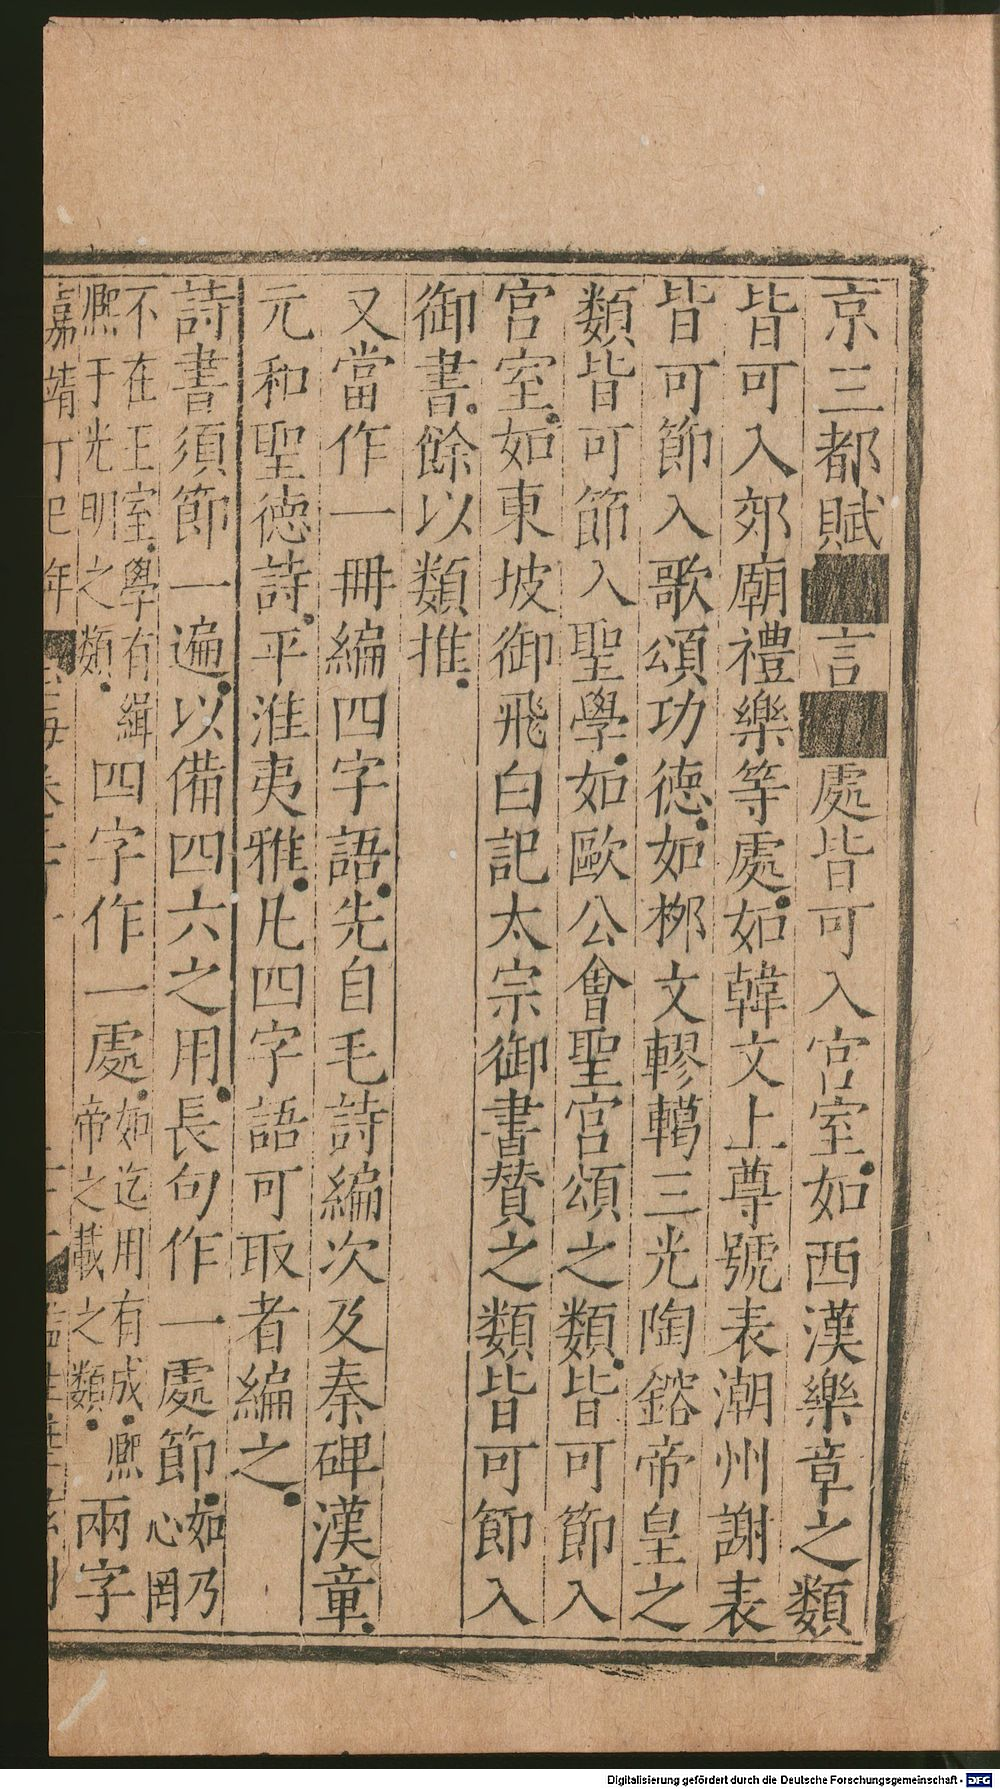 京三都賦言處皆可入宮室如西漢樂章之類
皆可入郊廟禮樂等處如韓文上尊號表潮州謝表
皆可節入歌頌功德如桞文轇轕三光陶鎔帝皇之
類皆可節入聖學如歐公會聖宮頌之類皆可節入
宮室如東坡御飛白記太宗御書贊之類皆可節入
御書餘以類推
又當作一冊編四字語先自毛詩編次及秦碑漢章
元和聖德詩平淮夷雅凡四字語可取者編之
詩書須節一遍以備四六之用長句作一處節如乃心罔
不在王室學有緝熈于光明之類四字作一處如迄用有成熈帝之載之類兩字
嘉靖丁巳年
Digitalisierung gefördert durch die Deutsche Forschungsgemeinschaft - DFG